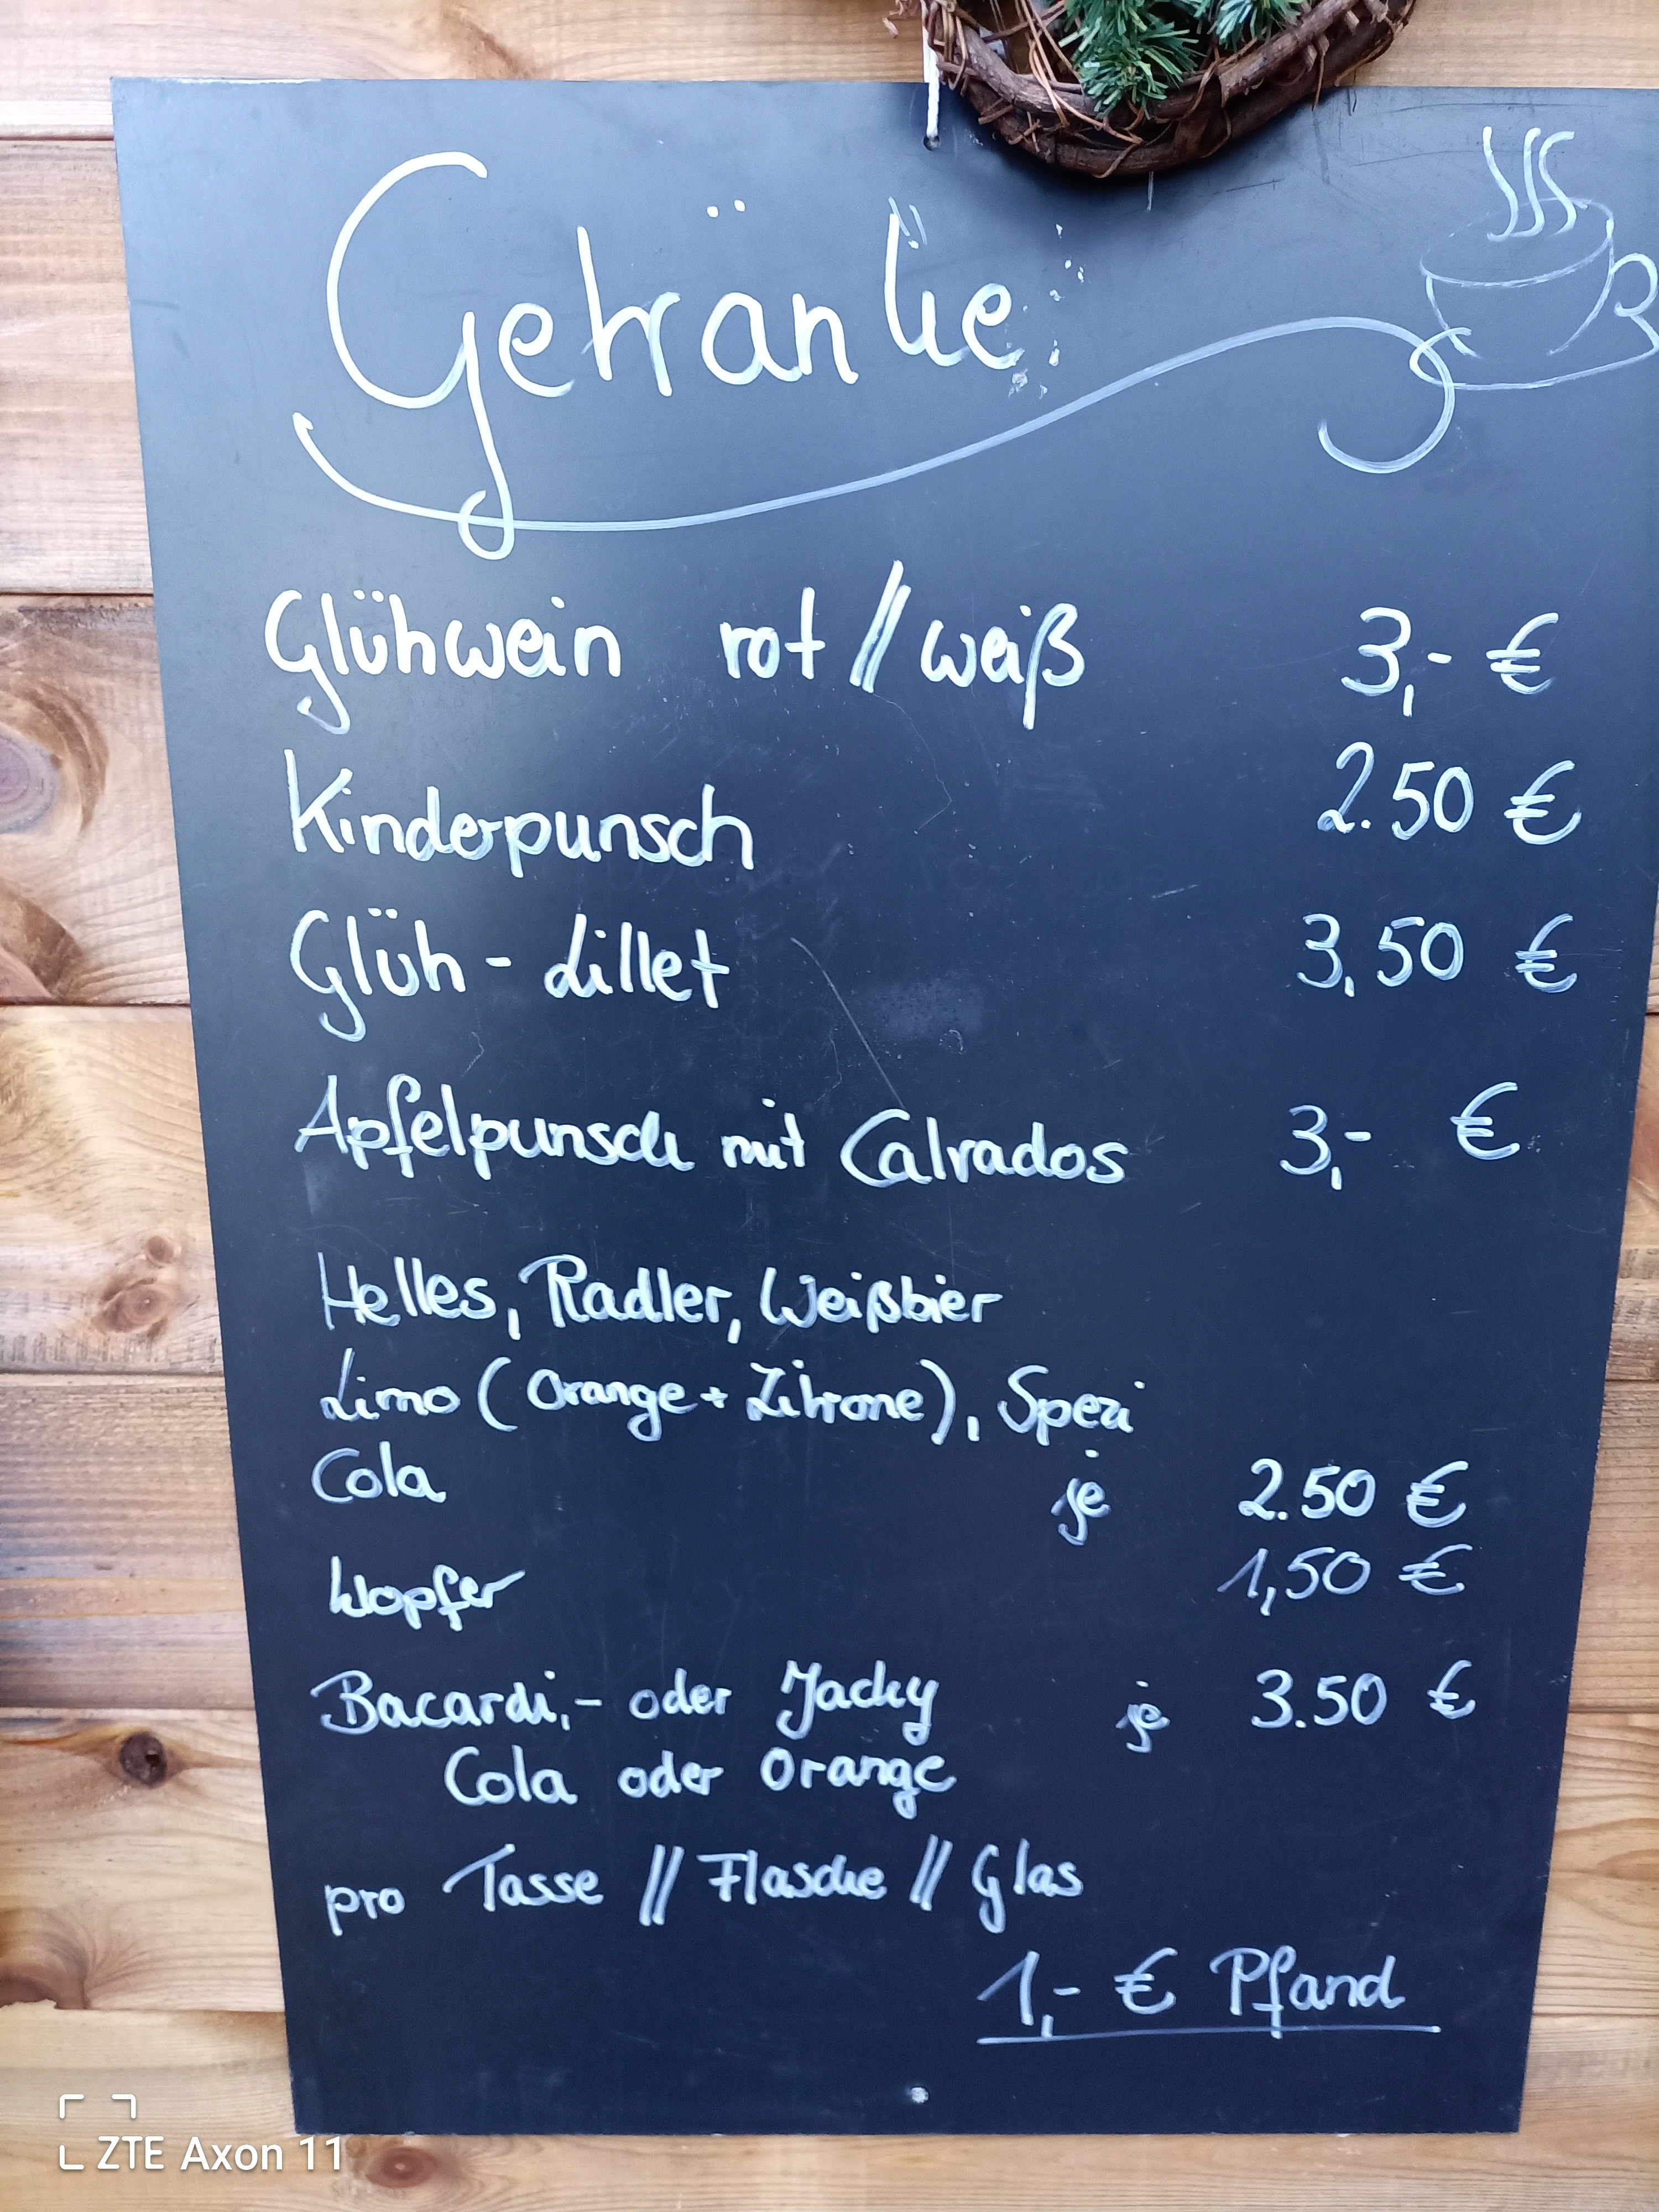 Getränke
Glühwein rot // weiß 3,- €
Kinderpunsch 2.50 €
Glüh - Lillet 3,50 €
Apfelpunsch mit Calvados 3,- €
Helles, Radler, Weißbier
Limo ( Orange + Zitrone), Spezi
Cola je 2.50 €
Klopfer 1,50 €
Bacardi,- oder Jacky je 3.50 €
Cola oder Orange
pro Tasse // Flasche // Glas
1,- € Pfand
ZTE Axon 11